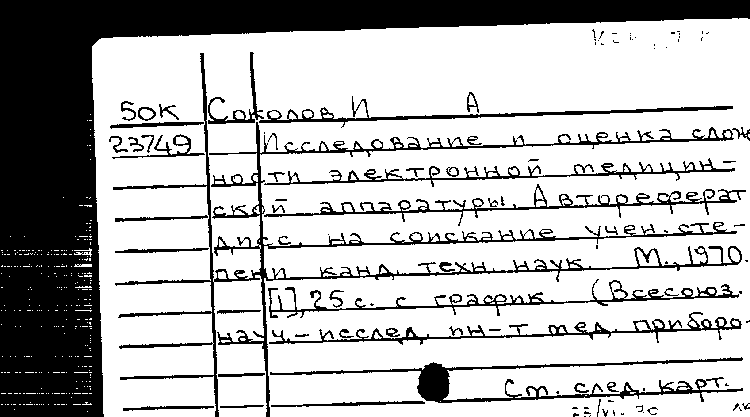 50К Соколов, И А
23749 Исследование и оценка слож
ности электронной медицин-
ской аппаратуры. Автореферат
дисс. на соискание учен. сте-
пени канд. техн. наук. М., 1970.
[1], 25 с. с график. (Всесоюз.
науч.-исслед. ин-т мед. приборо-
См. след. карт.